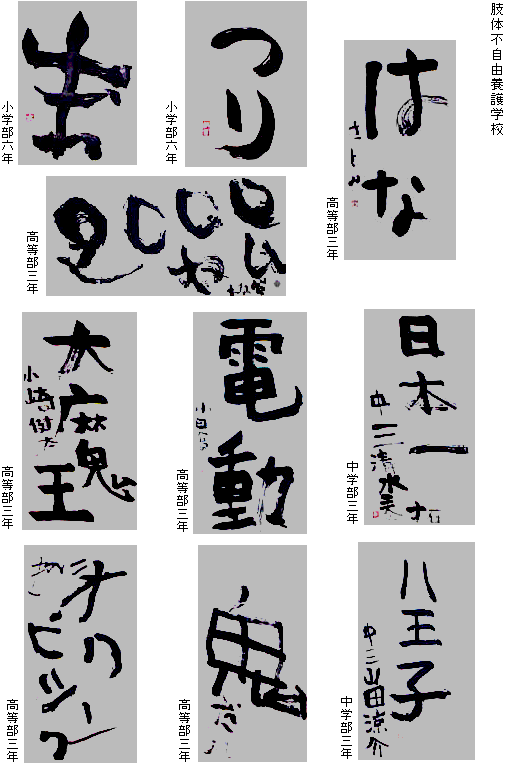 肢体不自由養護学校
はな
高等部三年
つり
小学部六年
小学部六年
2000
高等部三年
日本一
中三清水
中学部三年
電動
高等部三年
大魔王
高等部三年
八王子
中三山田涼介
中学部三年
鬼
高等部三年
オリンピック
高等部三年